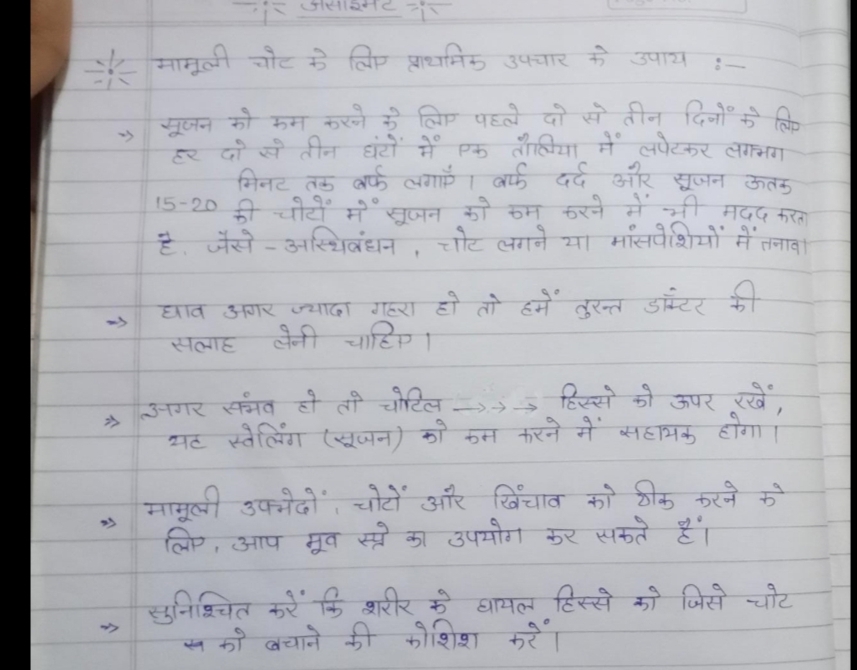 असाइमेंट
मामूली चोट के लिए प्राथमिक उपचार के उपाय :-
सूजन को कम करने के लिए पहले दो से तीन दिनों के लिए
हर दो से तीन घंटों में एक तौलिया में लपेटकर लगभग
मिनट तक बर्फ लगाएँ। बर्फ दर्द और सूजन ऊतक
15-20 की चोटों में सूजन को कम करने में भी मदद करता
है. जैसे - अस्थिबंधन, चोट लगने या मांसपेशियों में तनाव।
घाव अगर ज्यादा गहरा हो तो हमें तुरन्त डॉक्टर की
सलाह लेनी चाहिए।
अगर संभव हो तो चोटिल →→→ हिस्से को ऊपर रखें,
यह स्वेलिंग (सूजन) को कम करने में सहायक होगा।
मामूली, चोटों और खिंचाव को ठीक करने के
लिए, आप मूव स्प्रे का उपयोग कर सकते हैं।
सुनिश्चित करें कि शरीर के घायल हिस्से को जिसे चोट
को बचाने की कोशिश करें।